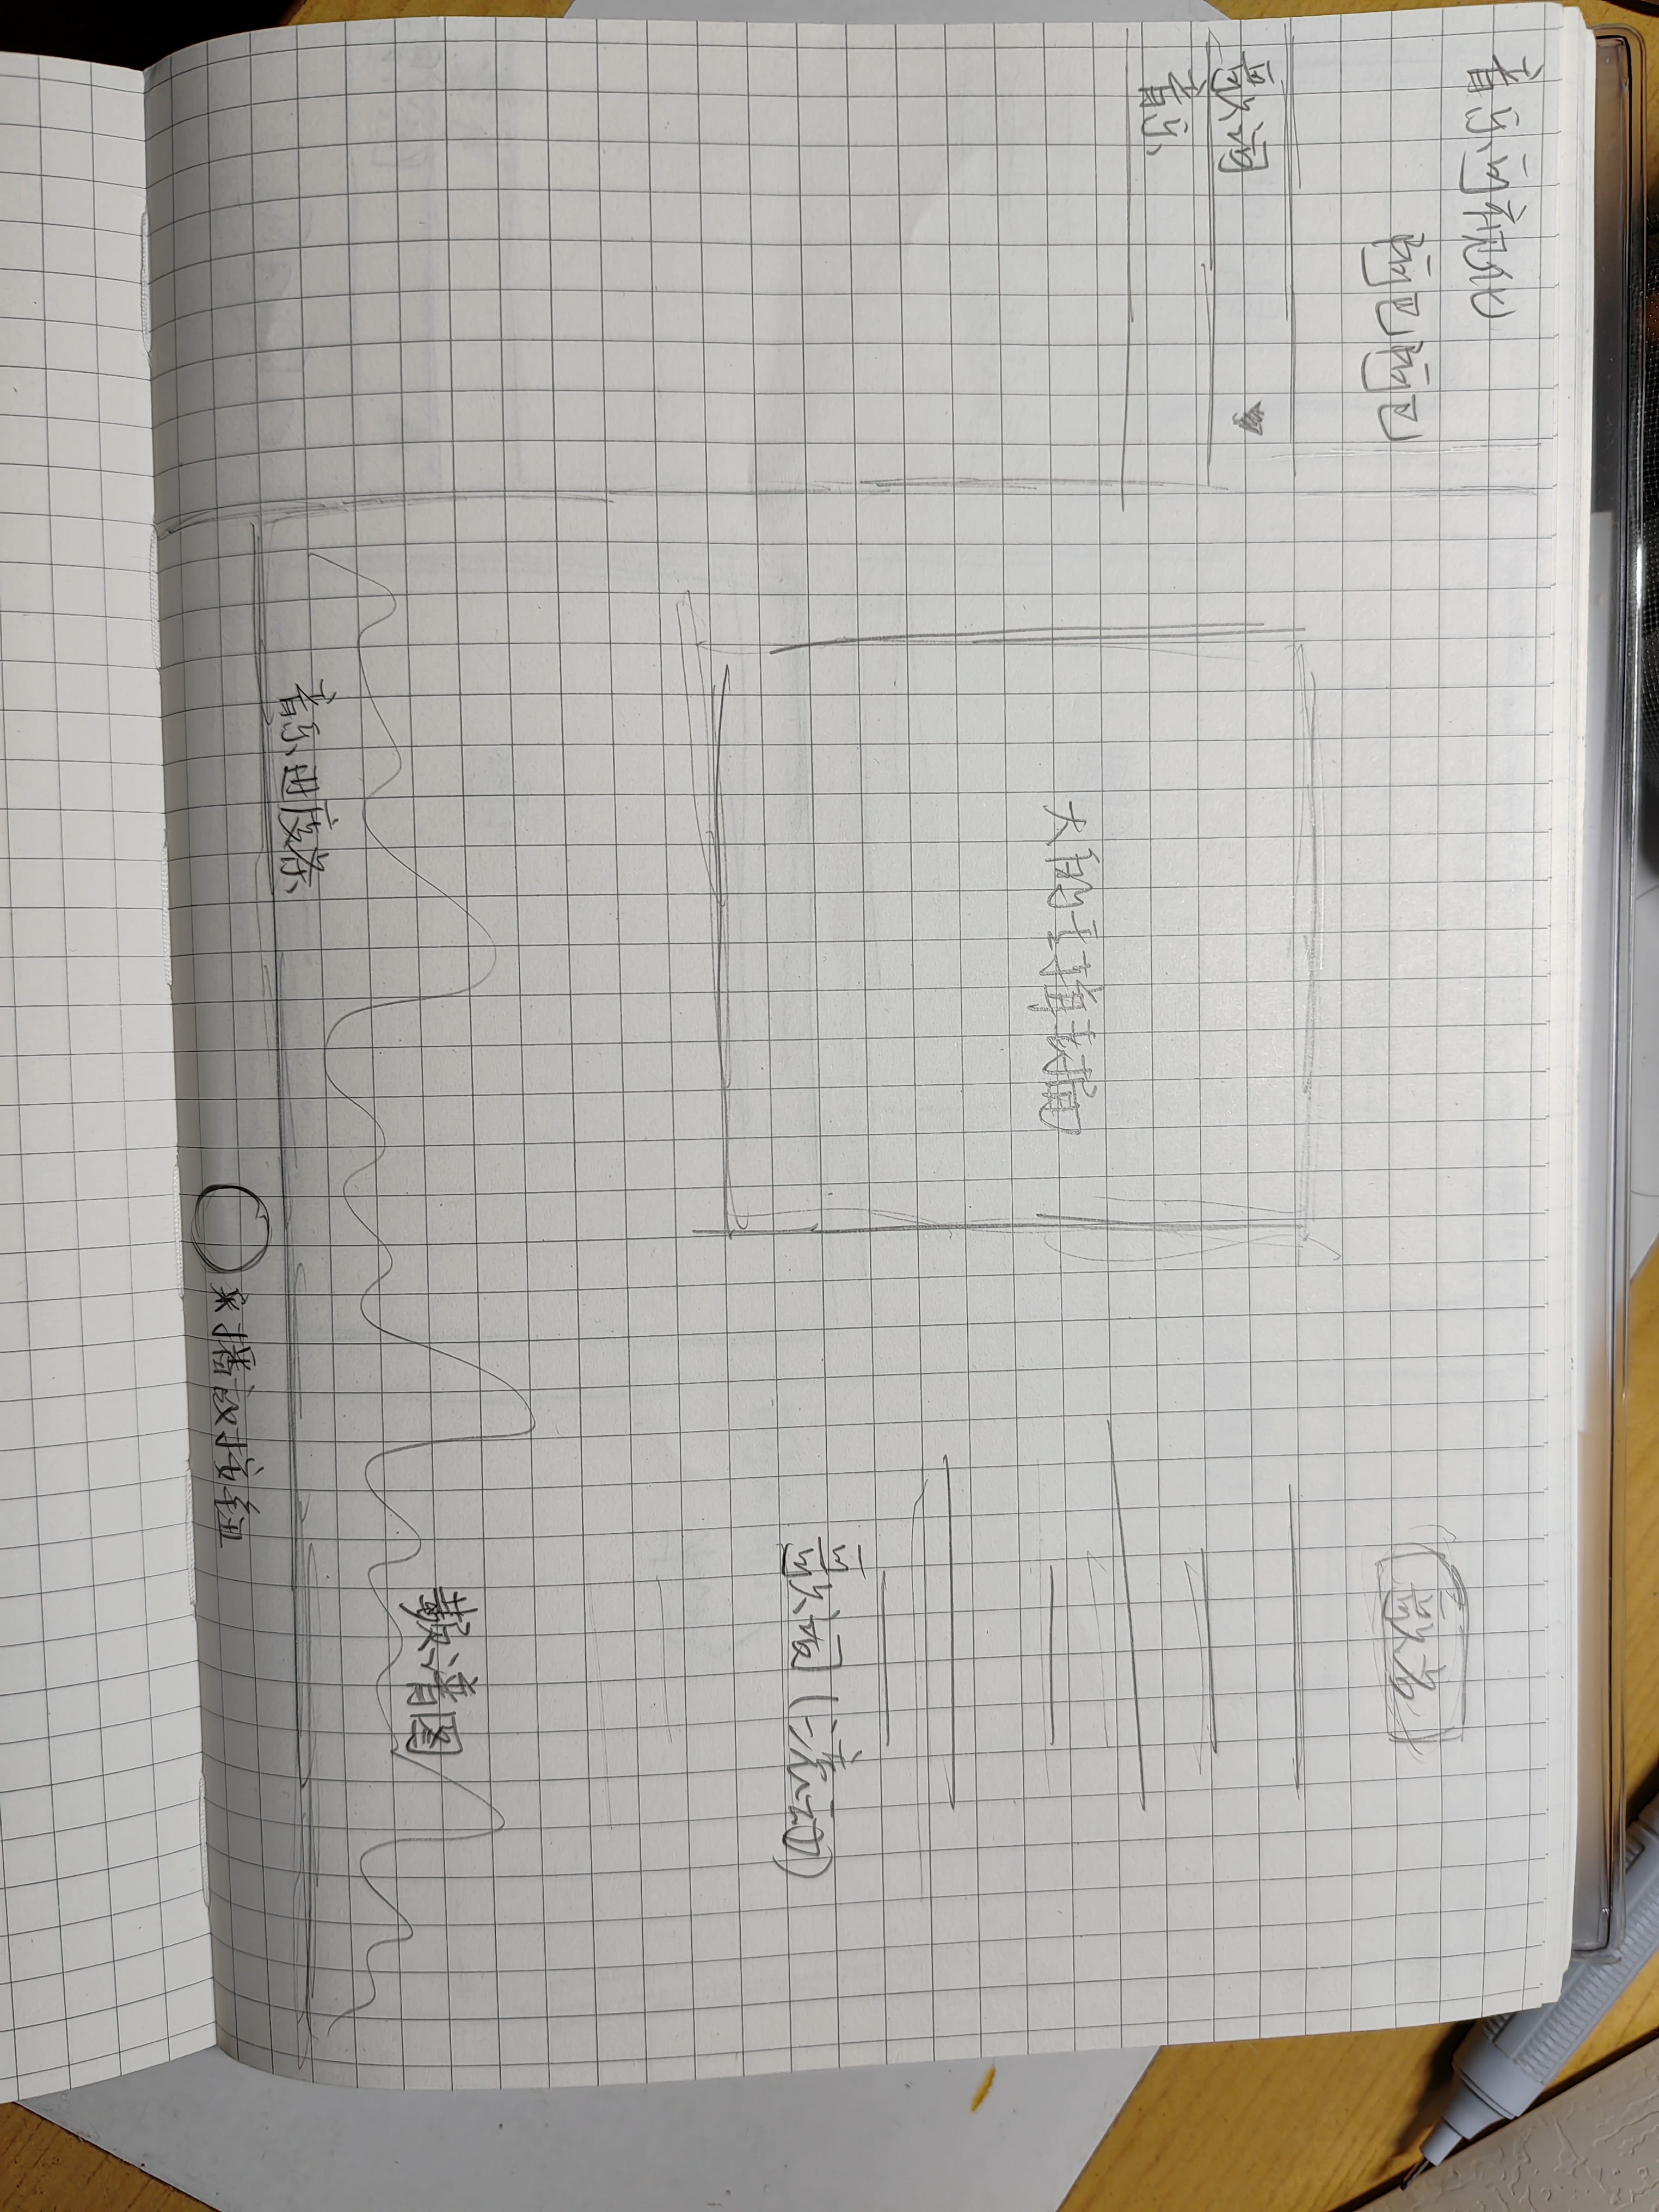 音乐可视化
阿巴阿巴
歌词
音乐
歌名
大的
歌词(滚动)
频谱图
音乐进度条
播放按钮